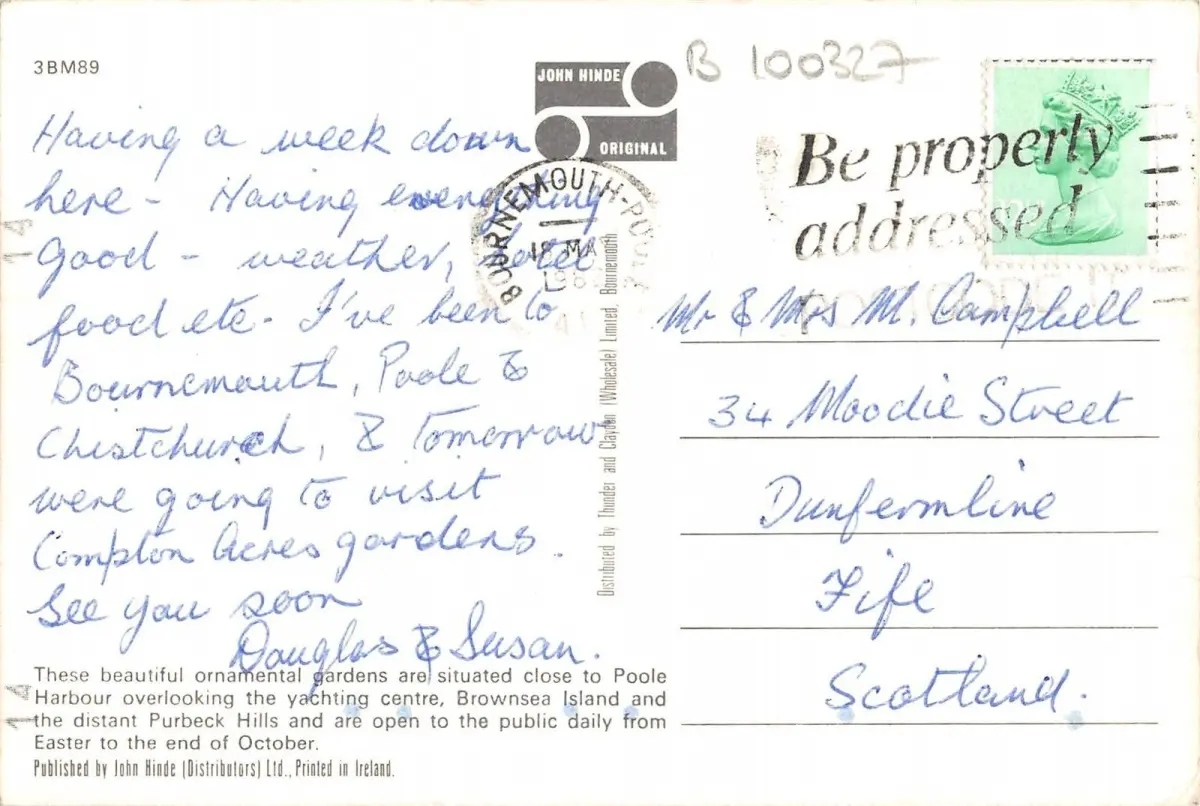 3BM89
JOHN HINDE
ORIGINAL
B 100327
Having a week down
here - Having everything
good - weather, hotel
food etc. I've been to
Bournemouth, Poole &
Chistchurch, & tomorrow
were going to visit
Compton Acres gardens.
See you soon
Douglas & Susan.
These beautiful ornamental gardens are situated close to Poole
Harbour overlooking the yachting centre, Brownsea Island and
the distant Purbeck Hills and are open to the public daily from
Easter to the end of October.
Published by John Hinde (Distributors) Ltd., Printed in Ireland.
14
14
BOURNEMOUTH-POOLE
18 MAY
Distributed by Thunder and Clayden (Wholesale) Limited, Bournemouth
Be properly
addressed
Mr & Mrs M. Campbell
34 Moodie Street
Dunfermline
Fife
Scotland.